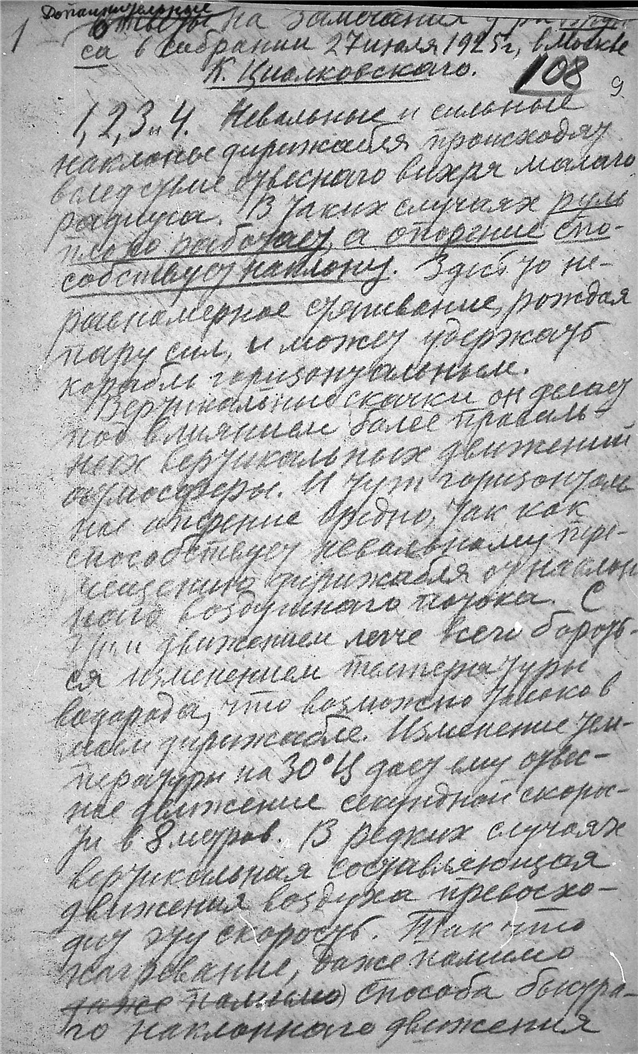 1 Дополнительные
ответы на замечания
са в собрании 27 июля 1925 г, в Москве
К. Циолковского.
108 9
1, 2, 3 и 4. Невольные и сильные
наклоны дирижабля происходят
вследствие отвесного вихря малого
радиуса. В таких случаях руль
плохо работает, а оперение спо-
собствует наклону. Здесь то не-
равномерное стягивание, рождая
пару сил, и может удержать
корабль горизонтальным.
Вертикальные скачки он делает
под влиянием более правиль-
ных вертикальных движений
атмосферы. И тут горизонталь
ное оперение вредно, так как
способствует невольному пере-
мещению дирижабля от наклон
ного воздушного потока. С
этим движением легче всего бороть-
ся изменением температуры
водорода, что возможно только в
моем дирижабле. Изменение тем-
пературы на 30° Ц дает ему отвес-
ное движение секундной скорос-
ти в 8 метров. В редких случаях
вертикальная составляющая
движения воздуха превосхо-
дит эту скорость. Так что
нагревание, даже помимо
даже помимо способа быстро-
го наклонного движения